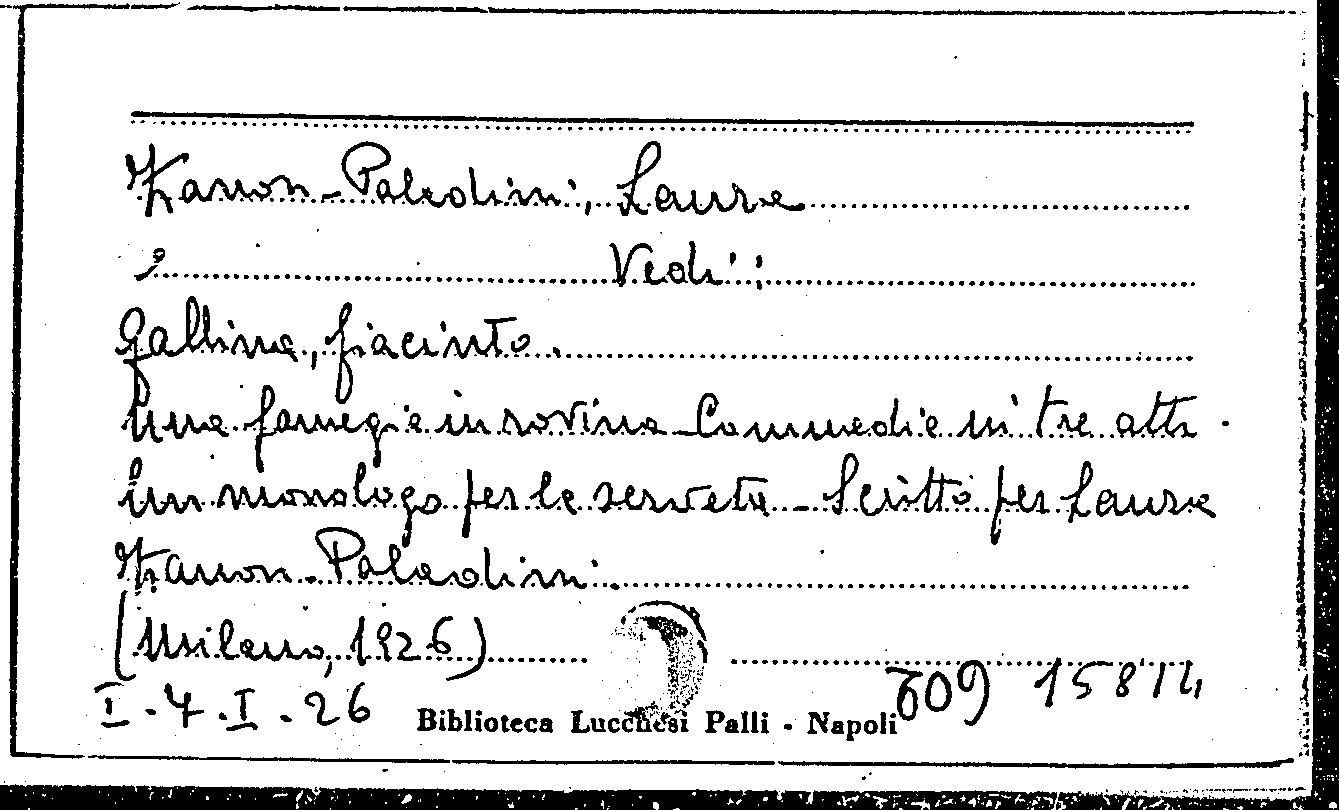 Zanon-Paladini, Laura
Vedi:
Gallina, Giacinto.
Una famegia in rovina Commedia in tre atti.
Un monologo per le servete - Scritto per Laura
Zanon-Paladini.
(Milano, 1926)
I.4.I.26 Biblioteca Lucchesi Palli - Napoli 609 15814